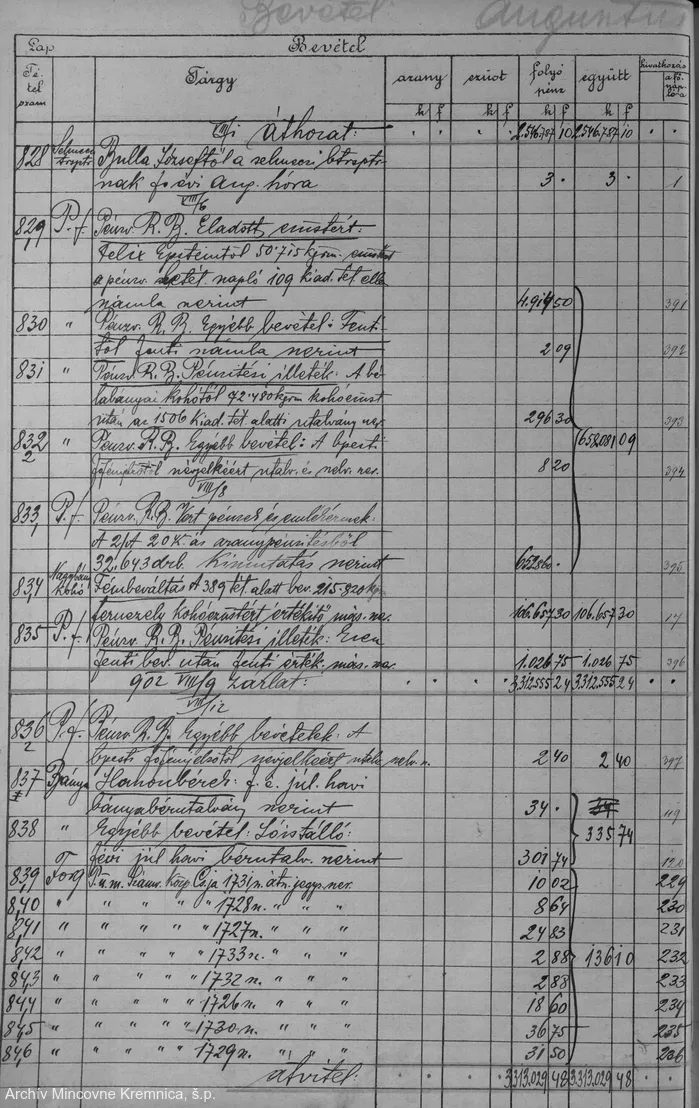 Bevétel Augustus
Lap Bevétel
Tétel szám Tárgy arany ezüst folyó pénz együtt hivatkozás a fő napló-a
k f k f k f k f
VIII/1 áthozat: 2.546.787 10 2.546.787 10
828 Bulla Józseftől a selmeczi
nak f. évi aug. hóra 3 . 3 . 1
VIII/6
829 P.f. Pénzv. R. B. Eladott ezüstért:
Felix Epsteintől 50.715 kgrm. ezüst
a pénzv. letét. napló 109 kiad. tét. elle
számla szerint 50 391
830 " Pénzv. R. B. Egyébb bevétel: Fenti
től fenti számla szerint 2 09 392
831 " Pénzv. R. B. Pénzitési illeték: A bé
labányai kohótól 72.480 kgrm kohóezüst
után az 1506 kiad. tét. alatti utalvány sze. 296 30 393
832 " Pénzv. R. B. Egyébb bevétel: A bpesti 09
2 utalv. és nelv. sze. 8 20 394
VIII/8
833 P.f. Pénzv. R. B. Vert pénzek és emlékérmek:
A 20 K. ás aranypénzitésből
32.643 drb. Kimutatás szerint 652860 . 395
834 Nagybány Kohó Fémbeváltás A 389 tét. alatt bev. 215.820 kgr
fernezely kohóezüstért értékitő más. sze. 106.657 30 106.657 30 17
835 P.f. Pénzv. R. B. Pénzitési illeték: Ezen
fenti bev. után fenti érték. más. sze. 1.026 75 1.026 75 396
902 VIII/9 zárlat: 3.312.555 24 3.312.555 24
VIII/12
836 P.f. Pénzv. R. B. Egyébb bevételek: A
2 bpesti utalv. nelv. n. 2 40 2 40 397
837 Bánya Haszonbérek: f. é. júl. havi
bányabérutalvány szerint 34 . 34 119
838 " Egyébb bevétel: Lóistálló: 335 74
févi júl havi bérutalv. szerint 301 74 120
839 Forg P. ü. m. Számv. Közp Csja 1731 n. átu. jegyz. sze. 10 02 229
840 " " " " " 1728 n. " " " 8 64 230
841 " " " " " 1727 n. " " " 24 83 231
842 " " " " " 1733 n. " " " 2 88 136 10 232
843 " " " " " 1732 n. " " " 2 88 233
844 " " " " " 1726 n. " " " 18 60 234
845 " " " " " 1730 n. " " " 36 75 235
846 " " " " " 1729 n. " " " 31 50 236
átvitel: 3.313.029 48 3.313.029 48
Archív Mincovne Kremnica, š.p.